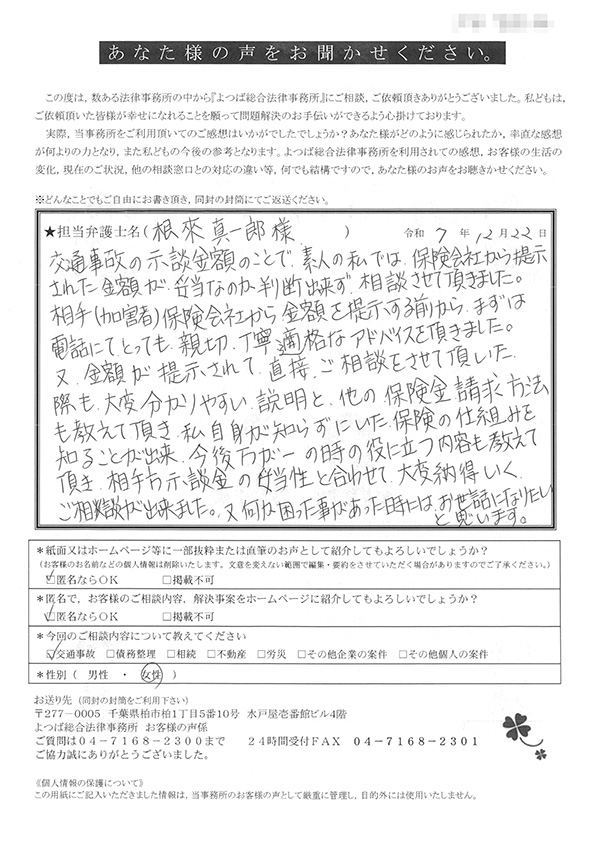 あなた様の声をお聞かせください。
この度は,数ある法律事務所の中から『よつば総合法律事務所』にご相談,ご依頼頂きありがとうございました。私どもは,
ご依頼頂いた皆様が幸せになれることを願って問題解決のお手伝いができるよう心掛けております。
実際,当事務所をご利用頂いてのご感想はいかがでしたでしょうか?あなた様がどのように感じられたか,率直な感想
が何よりの力となり,また私どもの今後の参考となります。よつば総合法律事務所を利用されての感想,お客様の生活の
変化,現在のご状況,他の相談窓口との対応の違い等,何でも結構ですので,あなた様のお声をお聴きかせください。
※どんなことでもご自由にお書き頂き,同封の封筒にてご返送ください。
★担当弁護士名(根來真一郎様) 令和7年12月22日
交通事故の示談金額のことで、素人の私では、保険会社から提示
された金額が、妥当なのか判断出来ず、相談させて頂きました。
相手(加害者)保険会社から金額を提示する前から、まずは
電話にて、とっても、親切、丁寧、適格なアドバイスを頂きました。
又、金額が提示されて、直接、ご相談をさせて頂いた
際も、大変分かりやすい説明と、他の保険金請求方法
も教えて頂き、私自身が知らずにいた、保険の仕組みを
知ることが出来、今後万が一の時の役に立つ内容も教えて
頂き、相手方示談金の妥当性と合わせて、大変納得いく、
ご相談が出来ました。又何か困った事があった時には、お世話になりたい
と思います。
*紙面又はホームページ等に一部抜粋または直筆のお声として紹介してもよろしいでしょうか?
(お客様のお名前などの個人情報は削除いたします。文意を変えない範囲で編集・要約をさせていただく場合がありますのでご了承ください。)
☑匿名ならOK □掲載不可
*匿名で,お客様のご相談内容,解決事案をホームページに紹介してもよろしいでしょうか?
☑匿名ならOK □掲載不可
*今回のご相談内容について教えてください
☑交通事故 □債務整理 □相続 □不動産 □労災 □その他企業の案件 □その他個人の案件
*性別(男性・女性)
お送り先(同封の封筒をご利用下さい)
〒277-0005 千葉県柏市柏1丁目5番10号 水戸屋壱番館ビル4階
よつば総合法律事務所 お客様の声係
ご質問は04-7168-2300まで 24時間受付FAX 04-7168-2301
ご協力誠にありがとうございました。
《個人情報の保護について》
この用紙にご記入いただきました情報は,当事務所のお客様の声として厳重に管理し,目的外には使用いたしません。